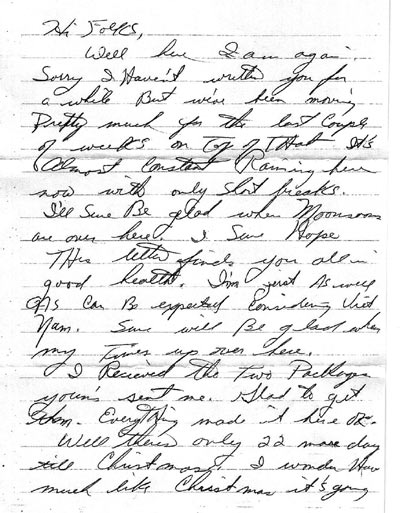 Hi Folks,
Well here I am again.
Sorry I Haven't written you for
a while But we've been moving
Pretty much for the last couple
of weeks on Top of THat It's
Almost constant Raining here
now with only short breaks.
I'll Sure Be glad when Moonsoons
are over here. I Sure Hope
THis letter finds you all in
good health. I'm just As well
As Can Be expected Considering Viet
Nam. Sure will Be glad when
my Times up over here.
I Recieved the two Packages
youn's sent me. Glad to get
them. EveryTHing made it here OK.
Well theirs only 22 more day
till Christmas. I wonder How
much like Christmas it's going